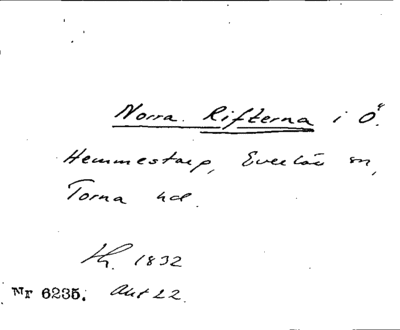 Norra Rifterna i Ö.
Hemmestorp, Everlöv sn,
Torna hd.
1832
Nr 6235. Akt 22